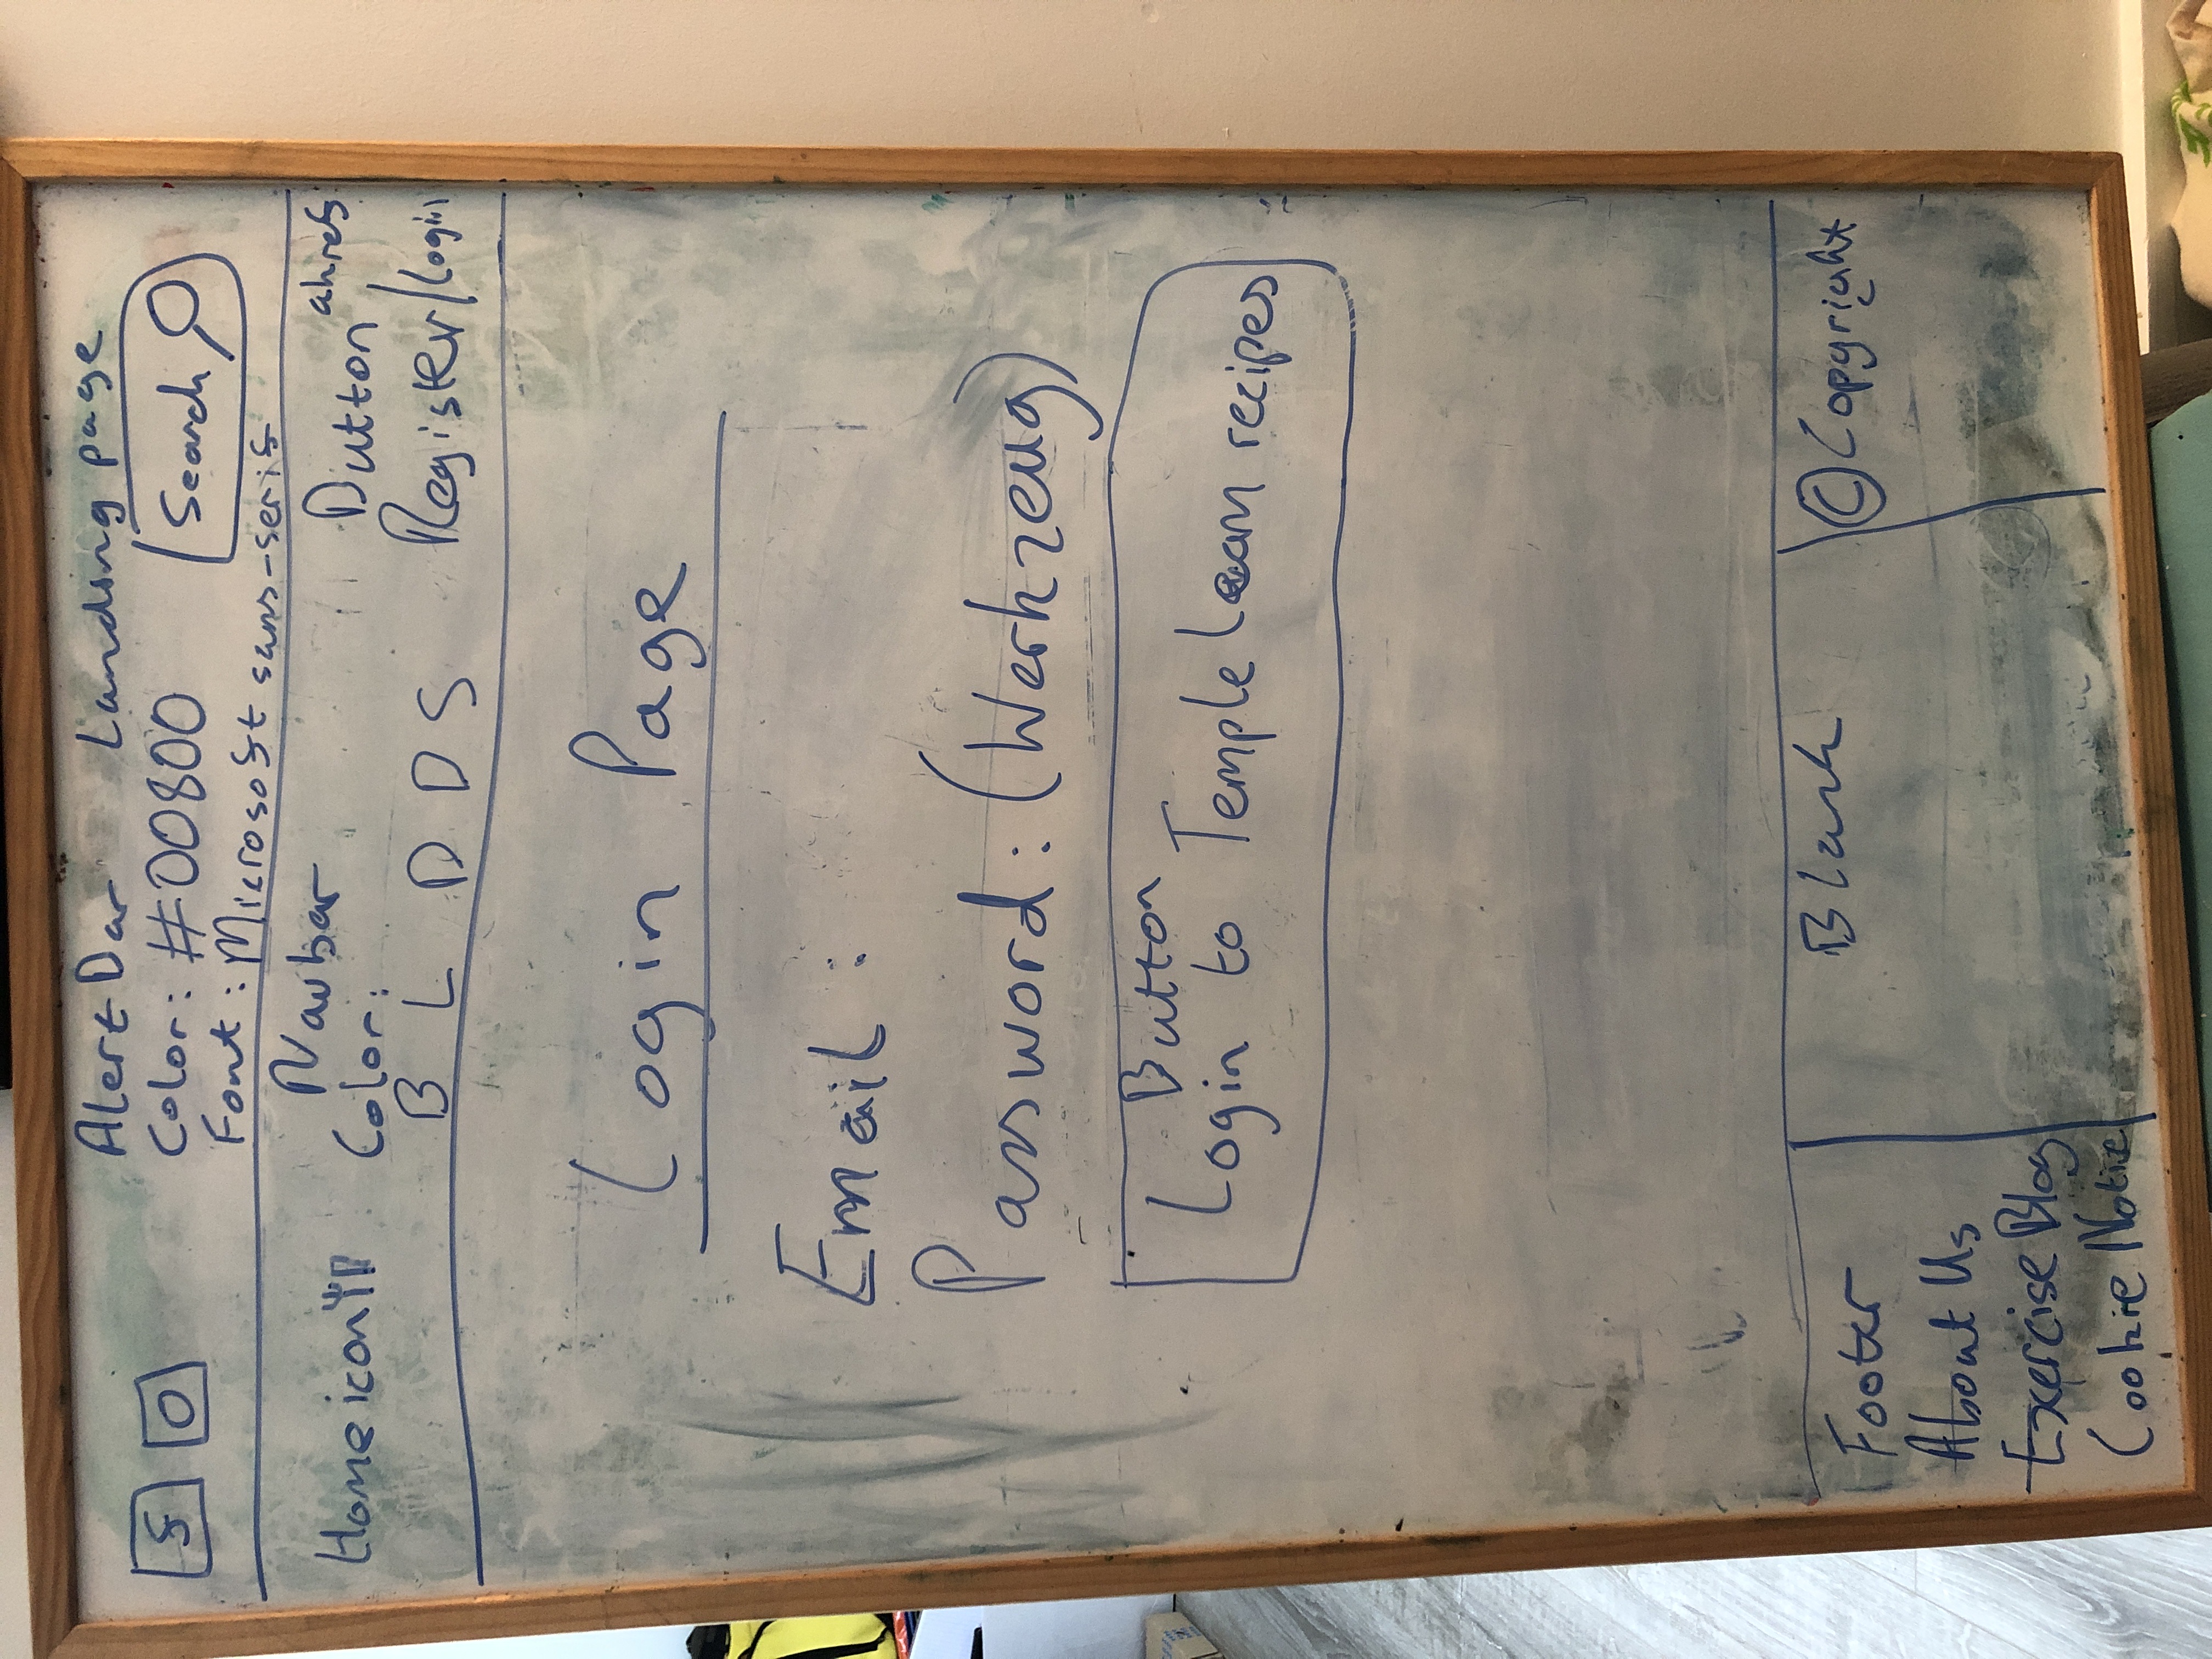 f O
Alert Bar Landing page
Color: #00800
Search
Font: Microsoft sans-serif
Home icon
Navbar
Color:
B L D D S
Button ahref
Register/Login
Login Page
Email :
Password: (Werkzeug)
Button
Login to Temple lean recipes
Footer
About Us
Exercise Blog
Cookie Notice
Blank
© Copyright